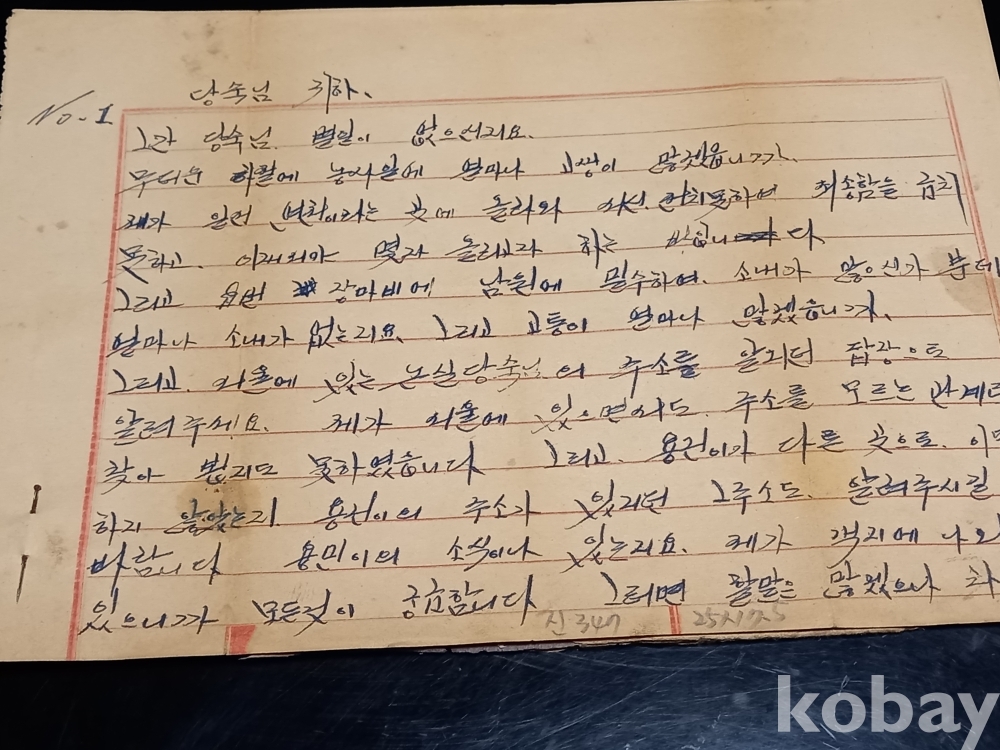 당숙님 귀하.
No-1
그간 당숙님. 별일이 없으신리요.
무더운 하팔에 농사일에 얼마나 고쌍이 많겠읍니가.
제가 일런 이라는 곳에 올라와 못하여 죄송함을 금치
못하고. 이래 몇자 올리고자 하는 다
그리고 번 장마비에 남원에 밀수하여. 소내가 많으신가 분데
얼마나 소내가 없는리요. 그리고 고통이 얼마나 많겠읍니가.
그리고. 서울에 있는 논실당숙님의 주소를 알리던 답장으로
알려주세요. 제가 서울에 있으면서도. 주소를 모르는 관계로
찾아 뵙지도 못하였읍니다 그리고. 용건이가 다른 곳으로. 이
하지 않았는지. 용건이의 주소가 있지던 그주소도. 알려주시길
바람니다 용민이의 소식이나 있는리요. 제가 객지에 나와
있으니가 모든것이 궁금함니다 그러면 할말은 많겠으나
진347 25x17.5
kobay